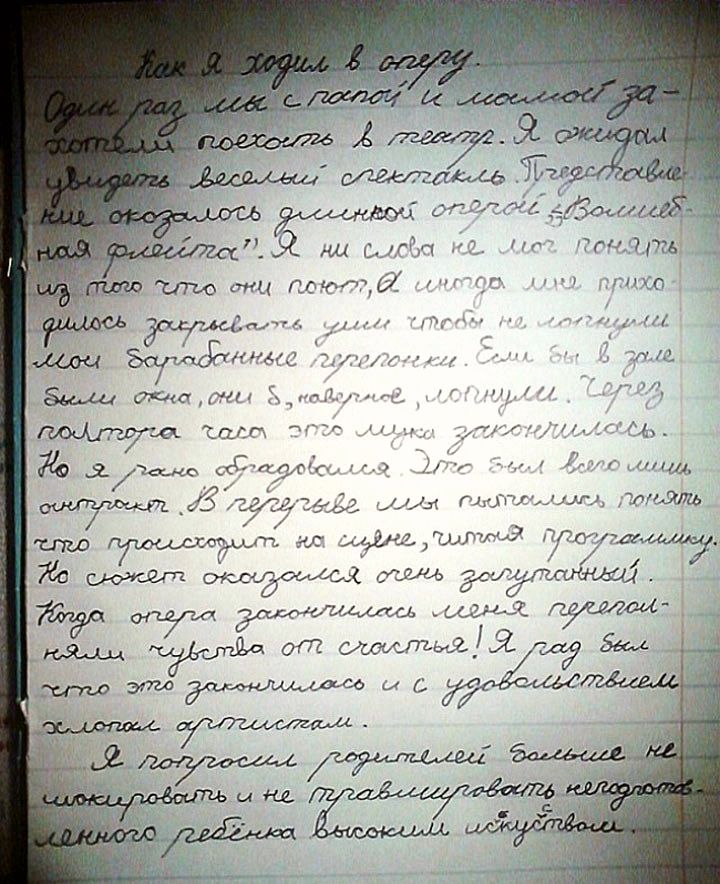 Как я ходил в оперу.
Один раз мы с папой и мамой за-
хотели поехать в театр. Я ожидал
увидеть веселый спектакль. Представле-
ние оказалось длинной оперой „Волшеб-
ная флейта”. Я ни слова не мог понять
из того что они поют, а иногда мне прихо-
дилось закрывать уши чтобы не лопнули
мои барабанные перепонки. Если бы в зале
были окна, они б, наверное, лопнули. Через
полтора часа это мука закончилась.
Но я рано обрадовался. Это был всего лишь
антракт. В перерыве мы пытались понять
что происходит на сцене, читая программку.
Но сюжет оказался очень запутанный.
Когда опера закончилась меня перепол-
няли чувства от счастья! Я рад был
что это закончилась и с удовольствием
хлопал артистам.
Я попросил родителей больше не
шокировать и не травмировать неподготов-
ленного ребёнка высоким искуством.